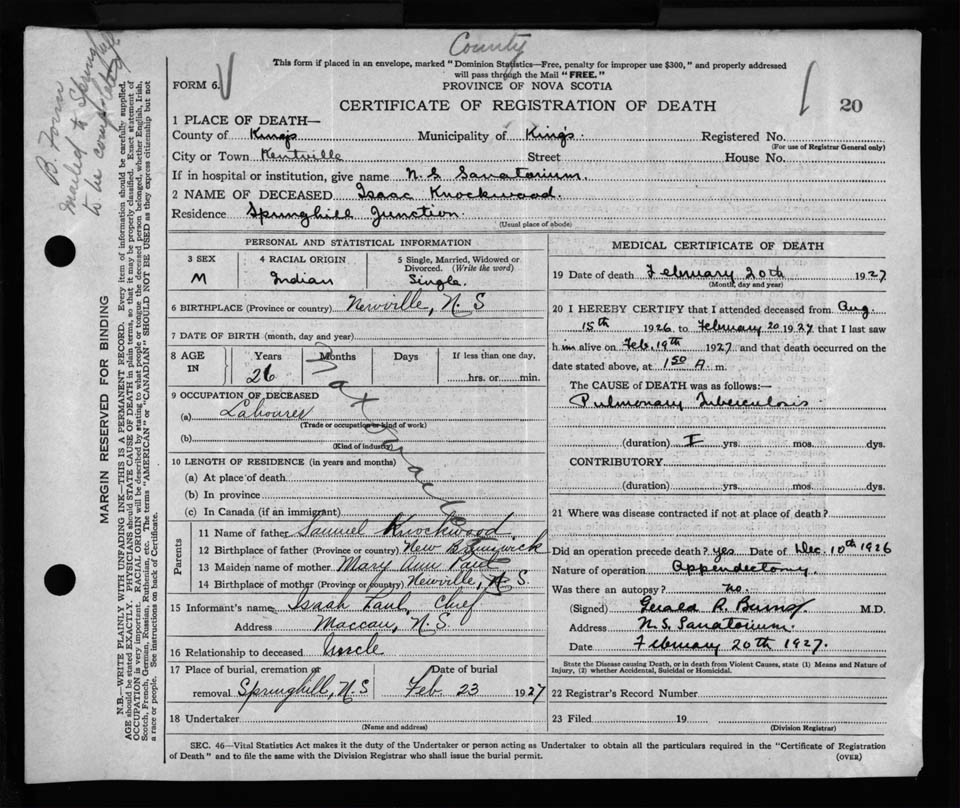 County
This form if placed in an envelope, marked "Dominion Statistics—Free, penalty for improper use $300," and properly addressed
will pass through the Mail "FREE."
FORM 6.
PROVINCE OF NOVA SCOTIA
CERTIFICATE OF REGISTRATION OF DEATH
20
1 PLACE OF DEATH—
County of Kings Municipality of Kings. Registered No.
(For use of Registrar General only)
City or Town Kentville Street House No.
If in hospital or institution, give name N.S Sanatorium.
2 NAME OF DECEASED Isaac Knockwood.
Residence Springhill Junction.
(Usual place of abode)
PERSONAL AND STATISTICAL INFORMATION
3 SEX 4 RACIAL ORIGIN 5 Single, Married, Widowed or
Divorced. (Write the word)
M Indian Single.
6 BIRTHPLACE (Province or country) Newville, N.S
7 DATE OF BIRTH (month, day and year)
8 AGE IN Years Months Days If less than one day,
26 hrs. or min.
9 OCCUPATION OF DECEASED
(a) Labourer
(Trade or occupation or kind of work)
(b)
(Kind of industry)
10 LENGTH OF RESIDENCE (in years and months)
(a) At place of death
(b) In province
(c) In Canada (if an immigrant)
Parents
11 Name of father Samuel Knockwood.
12 Birthplace of father (Province or country) New Brunswick
13 Maiden name of mother Mary Ann Paul
14 Birthplace of mother (Province or country) Newville, N S.
15 Informant's name Isaah Paul, Chief
Address Maccan, N.S.
16 Relationship to deceased Uncle
17 Place of burial, cremation or Date of burial
removal Springhill, N.S Feb. 23 1927
18 Undertaker
(Name and address)
MEDICAL CERTIFICATE OF DEATH
19 Date of death February 20th 1927
(Month, day and year)
20 I HEREBY CERTIFY that I attended deceased from Aug.
15th 1926 to February 20 1927 that I last saw
him alive on Feb. 19th 1927 and that death occurred on the
date stated above, at 1 50 A. m.
The CAUSE of DEATH was as follows:—
Pulmonary Tuberculosis
(duration) I yrs. mos. dys.
CONTRIBUTORY
(duration) yrs. mos. dys.
21 Where was disease contracted if not at place of death?
Did an operation precede death? yes Date of Dec. 10th 1926
Nature of operation Appendectomy.
Was there an autopsy? no.
(Signed) Gerald R. Burns M.D.
Address N.S. Sanatorium.
Date February 20th 1927.
State the Disease causing Death, or in death from Violent Causes, state (1) Means and Nature of
Injury, (2) whether Accidental, Suicidal or Homicidal.
22 Registrar's Record Number
23 Filed 19
(Division Registrar)
SEC. 46—Vital Statistics Act makes it the duty of the Undertaker or person acting as Undertaker to obtain all the particulars required in the "Certificate of Registration
of Death" and to file the same with the Division Registrar who shall issue the burial permit.
(OVER)
B. Form
mailed to Spring
to be
MARGIN RESERVED FOR BINDING
N.B.—WRITE PLAINLY WITH UNFADING INK—THIS IS A PERMANENT RECORD. Every item of information should be carefully supplied.
AGE should be stated EXACTLY. PHYSICIANS should STATE CAUSE OF DEATH in plain terms, so that it may be properly classified. Exact statement of
OCCUPATION is very important. RACIAL ORIGIN will be described by stating to what people or tongue the deceased person belonged, whether English, Irish,
Scotch, French, German, Russian, Ruthenian, etc. The terms "AMERICAN" or "CANADIAN" SHOULD NOT BE USED as they express citizenship but not
a race or people. See instructions on back of Certificate.